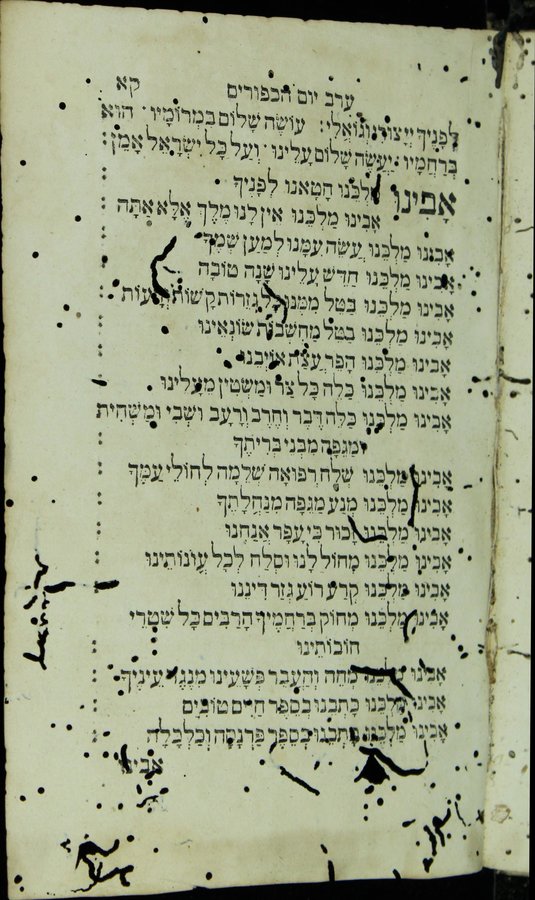 ערב יום הכפורים קא
לְפָנֶיךָ יְיָ צוּרִי וְגוֹאֲלִי : עוֹשֶׂה שָׁלוֹם בִּמְרוֹמָיו · הוּא
בְּרַחֲמָיו · יַעֲשֶׂה שָׁלוֹם עָלֵינוּ · וְעַל כָּל יִשְׂרָאֵל אָמֵן :
אָבִינוּ מַלְכֵּנוּ חָטָאנוּ לְפָנֶיךָ
אָבִינוּ מַלְכֵּנוּ אֵין לָנוּ מֶלֶךְ אֶלָּא אַתָּה
אָבִינוּ מַלְכֵּנוּ עֲשֵׂה עִמָּנוּ לְמַעַן שְׁמֶךָ :
אָבִינוּ מַלְכֵּנוּ חַדֵּשׁ עָלֵינוּ שָׁנָה טוֹבָה :
אָבִינוּ מַלְכֵּנוּ בַּטֵּל מִמֶּנּוּ כָּל גְּזֵרוֹת קָשׁוֹת וְרָעוֹת :
אָבִינוּ מַלְכֵּנוּ בַּטֵּל מַחְשְׁבוֹת שׂוֹנְאֵינוּ :
אָבִינוּ מַלְכֵּנוּ הָפֵר עֲצַת אוֹיְבֵנוּ :
אָבִינוּ מַלְכֵּנוּ כַּלֵּה כָּל צַר וּמַשְׂטִין מֵעָלֵינוּ :
אָבִינוּ מַלְכֵּנוּ כַּלֵּה דֶּבֶר וְחֶרֶב וְרָעָב וּשְׁבִי וּמַשְׁחִית
וּמַגֵּפָה מִבְּנֵי בְרִיתֶךָ
אָבִינוּ מַלְכֵּנוּ שְׁלַח רְפוּאָה שְׁלֵמָה לְחוֹלֵי עַמֶּךָ :
אָבִינוּ מַלְכֵּנוּ מְנַע מַגֵּפָה מִנַּחֲלָתֶךָ :
אָבִינוּ מַלְכֵּנוּ זָכוּר כִּי עָפָר אֲנָחְנוּ :
אָבִינוּ מַלְכֵּנוּ מְחוֹל לָנוּ וּסְלַח לְכָל עֲוֹנוֹתֵינוּ :
אָבִינוּ מַלְכֵּנוּ קְרַע רוֹעַ גְּזַר דִּינֵנוּ :
אָבִינוּ מַלְכֵּנוּ מְחוֹק בְּרַחֲמֶיךָ הָרַבִּים כָּל שִׁטְרֵי
חוֹבוֹתֵינוּ :
אָבִינוּ מַלְכֵּנוּ מְחֵה וְהַעֲבֵר פְּשָׁעֵינוּ מִנֶּגֶד עֵינֶיךָ :
אָבִינוּ מַלְכֵּנוּ כָּתְבֵנוּ בְּסֵפֶר חַיִּים טוֹבִים :
אָבִינוּ מַלְכֵּנוּ כָּתְבֵנוּ בְּסֵפֶר פַּרְנָסָה וְכַלְכָּלָה :
אבינו